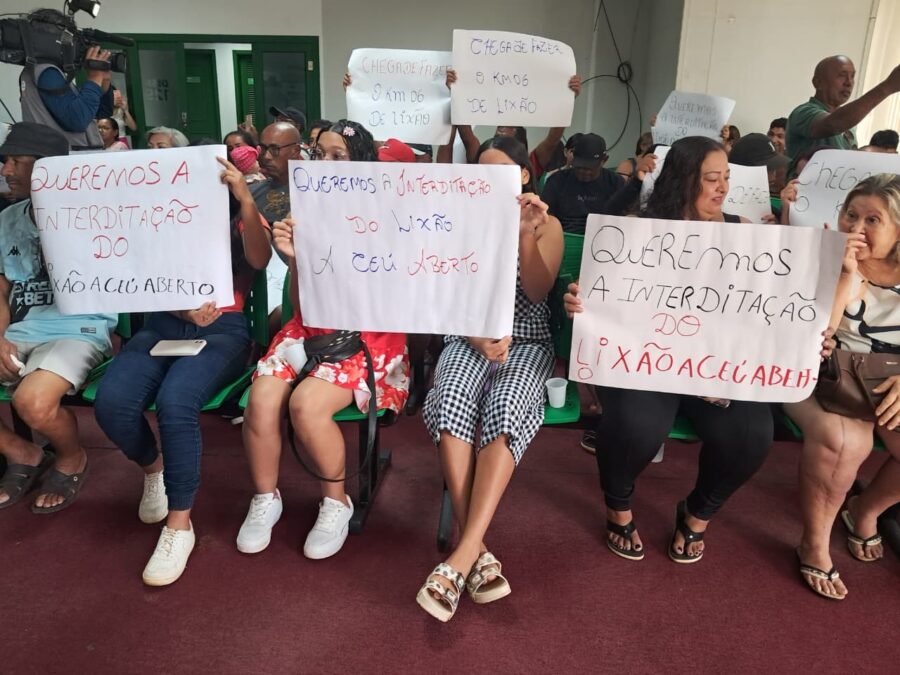 CHEGA DE FAZER
O KM 06
DE LIXÃO
CHEGA DE FAZER
O KM 06
DE LIXÃO
QUEREMOS
QUEREMOS A
INTERDITAÇÃO
DO
LIXÃO A CEÚ ABERTO
QUEREMOS A INTERDITAÇÃO
DO LIXÃO
A CEÚ ABERTO
QUEREMOS
A INTERDITAÇÃO
DO
LIXÃO A CEÚ ABEH-
CHEGA
BET